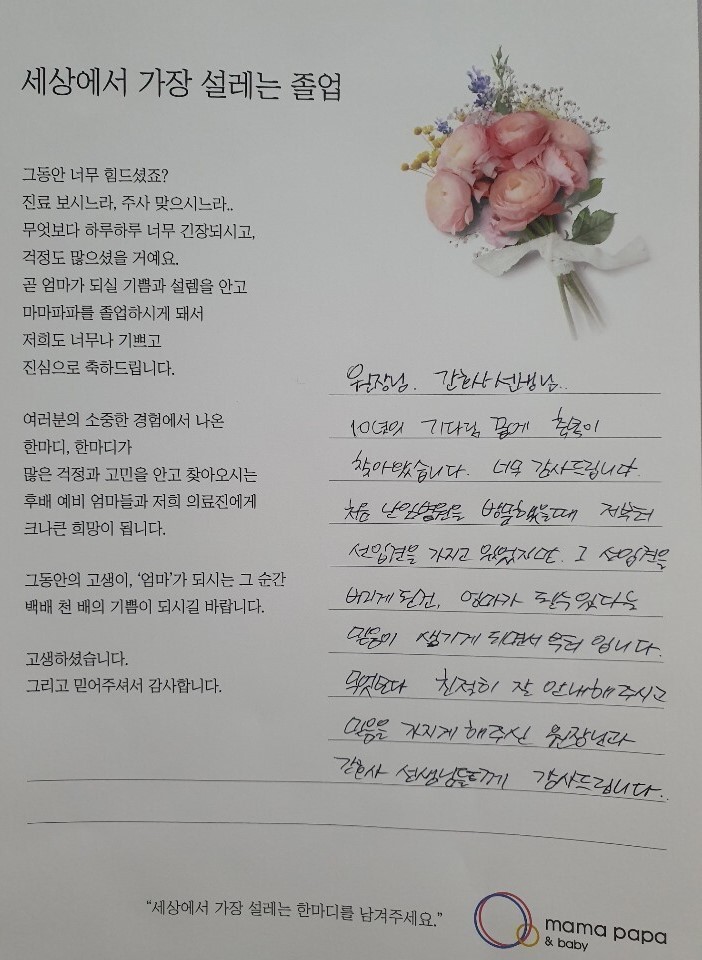 세상에서 가장 설레는 졸업
그동안 너무 힘드셨죠?
진료 보시느라, 주사 맞으시느라..
무엇보다 하루하루 너무 긴장되시고,
걱정도 많으셨을 거예요.
곧 엄마가 되실 기쁨과 설렘을 안고
마마파파를 졸업하시게 돼서
저희도 너무나 기쁘고
진심으로 축하드립니다.
여러분의 소중한 경험에서 나온
한마디, 한마디가
많은 걱정과 고민을 안고 찾아오시는
후배 예비 엄마들과 저희 의료진에게
크나큰 희망이 됩니다.
그동안의 고생이, '엄마'가 되시는 그 순간
백배 천 배의 기쁨이 되시길 바랍니다.
고생하셨습니다.
그리고 믿어주셔서 감사합니다.
원장님. 간호사 선생님..
10년의 기다림 끝에 축복이
찾아왔습니다. 너무 감사드립니다.
처음 난임병원을 방문했을때 저부터
선입견을 가지고 있었지만. 그 선입견을
버리게 된건, 엄마가 될수 있다는
믿음이 생기게 되면서 부터 입니다.
무엇보다 친절히 잘 안내해주시고
믿음을 가지게 해주신 원장님과
간호사 선생님들께 감사드립니다..
"세상에서 가장 설레는 한마디를 남겨주세요."
mama papa
& baby